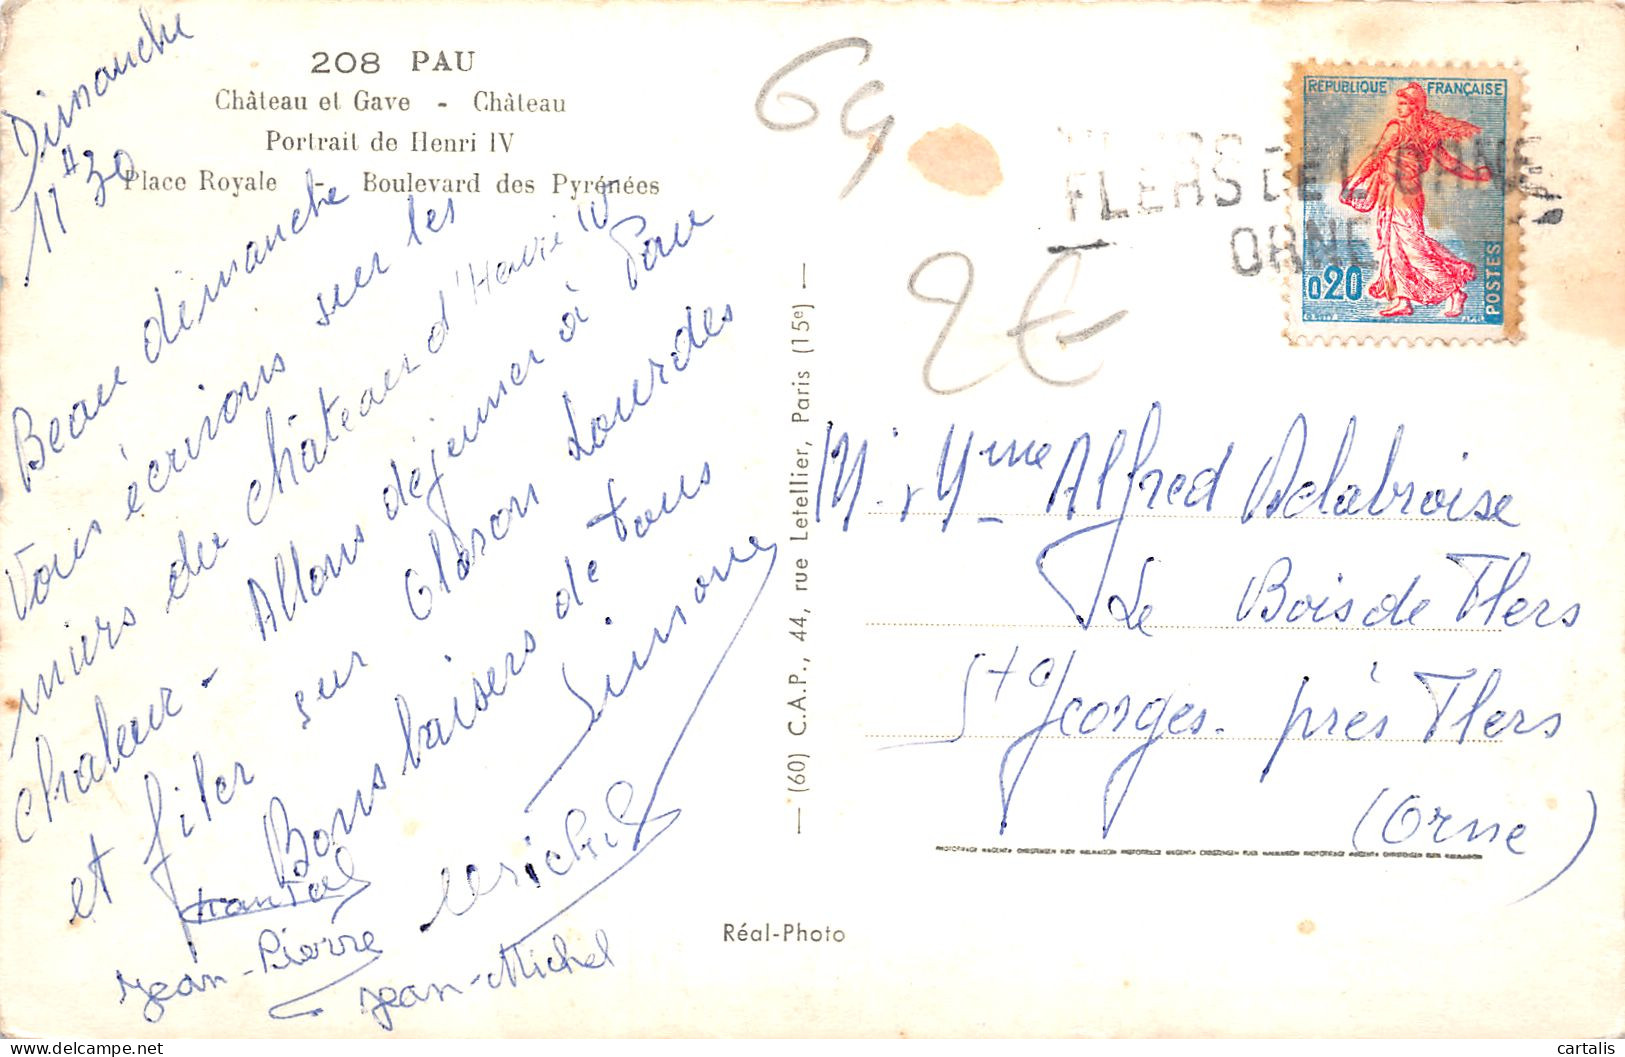 208 PAU
Château et Gave - Château
Portrait de Henri IV
Place Royale - Boulevard des Pyrénées
Dimanche
11H30
Beau dimanche
Vous écrivons sur les
murs du château d'Henri IV
chaleur - Allons déjeuner à Pau
et filer sur Oloron Lourdes
Bons baisers de tous
Simone
Chantal
Jean-Pierre
Jean-Michel
— (60) C.A.P., 44, rue Letellier, Paris (15e) —
Réal-Photo
64
2€
FLERS DE L'ORNE
ORNE
REPUBLIQUE FRANÇAISE
0,20
POSTES
M. Mme Alfred Delabroise
Le Bois de Flers
St Georges près Flers
(Orne)
cartalis